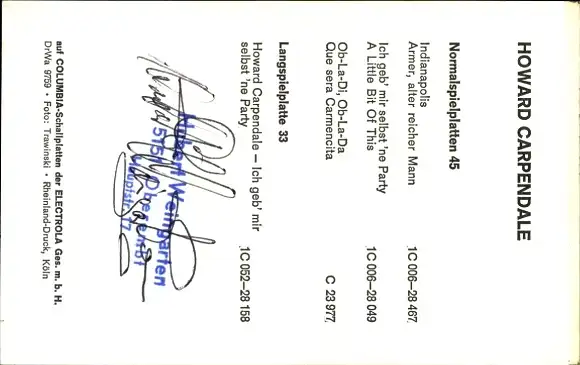 HOWARD CARPENDALE
Normalspielplatten 45
Indianapolis
Armer, alter reicher Mann 1C 006-28 467
Ich geb' mir selbst 'ne Party
A Little Bit Of This 1C 006-28 049
Ob-La-Di, Ob-La-Da
Que sera Carmencita C 23 977
Langspielplatte 33
Howard Carpendale – Ich geb' mir
selbst 'ne Party 1C 052-28 158
Hubert Weingarten
Hauptstr. 17
auf COLUMBIA-Schallplatten der ELECTROLA Ges. m. b. H.
DrWa 9759 • Foto: Trawinski • Rheinland-Druck, Köln